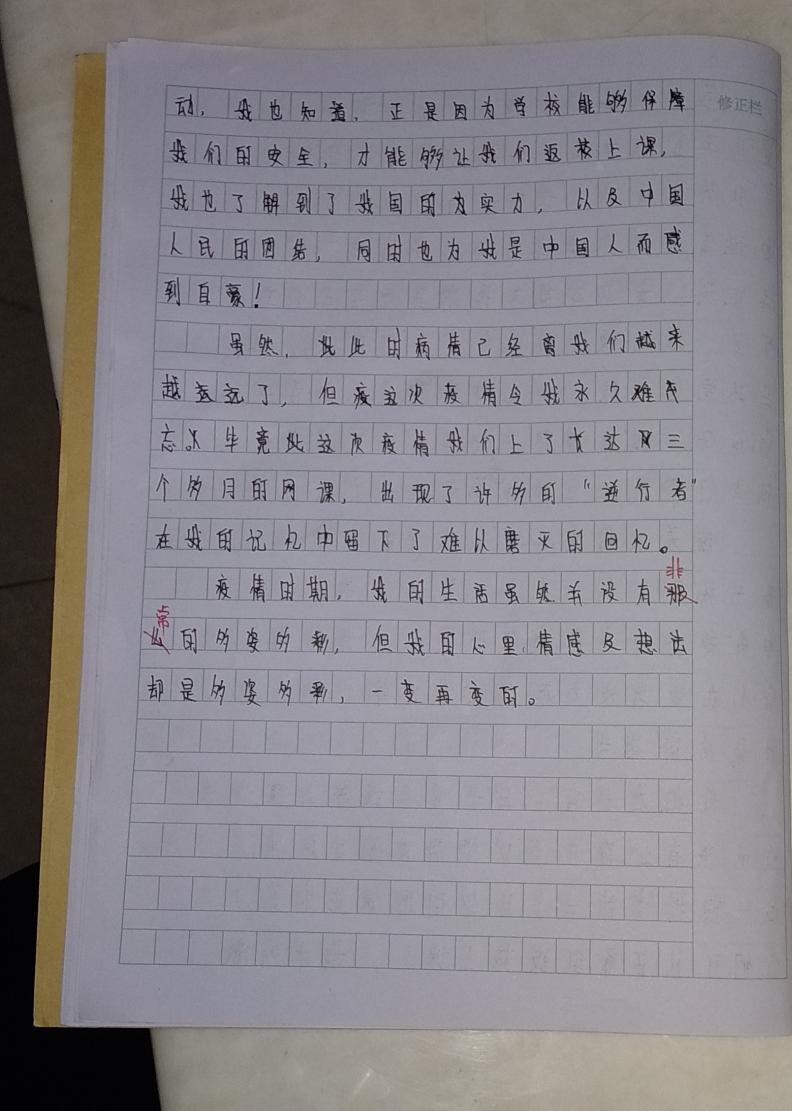 动，我也知道，正是因为学校能够保障 修正栏
我们的安全，才能够让我们返校上课，
我也了解到了我国的为实力，以及中国
人民的团结，同时也为我是中国人而感
到自豪！
虽然，此此时病情已经离我们越来
越远了，但疫这次疫情令我永久难
忘。毕竟此这次疫情我们上了长达三
个多月的网课，出现了许多的“逆行者”
在我的记忆中留下了难以磨灭的回忆。
非
疫情时期，我的生活虽然并没有那
常
么的多姿多彩，但我的心里情感及想法
却是多姿多彩，一变再变的。